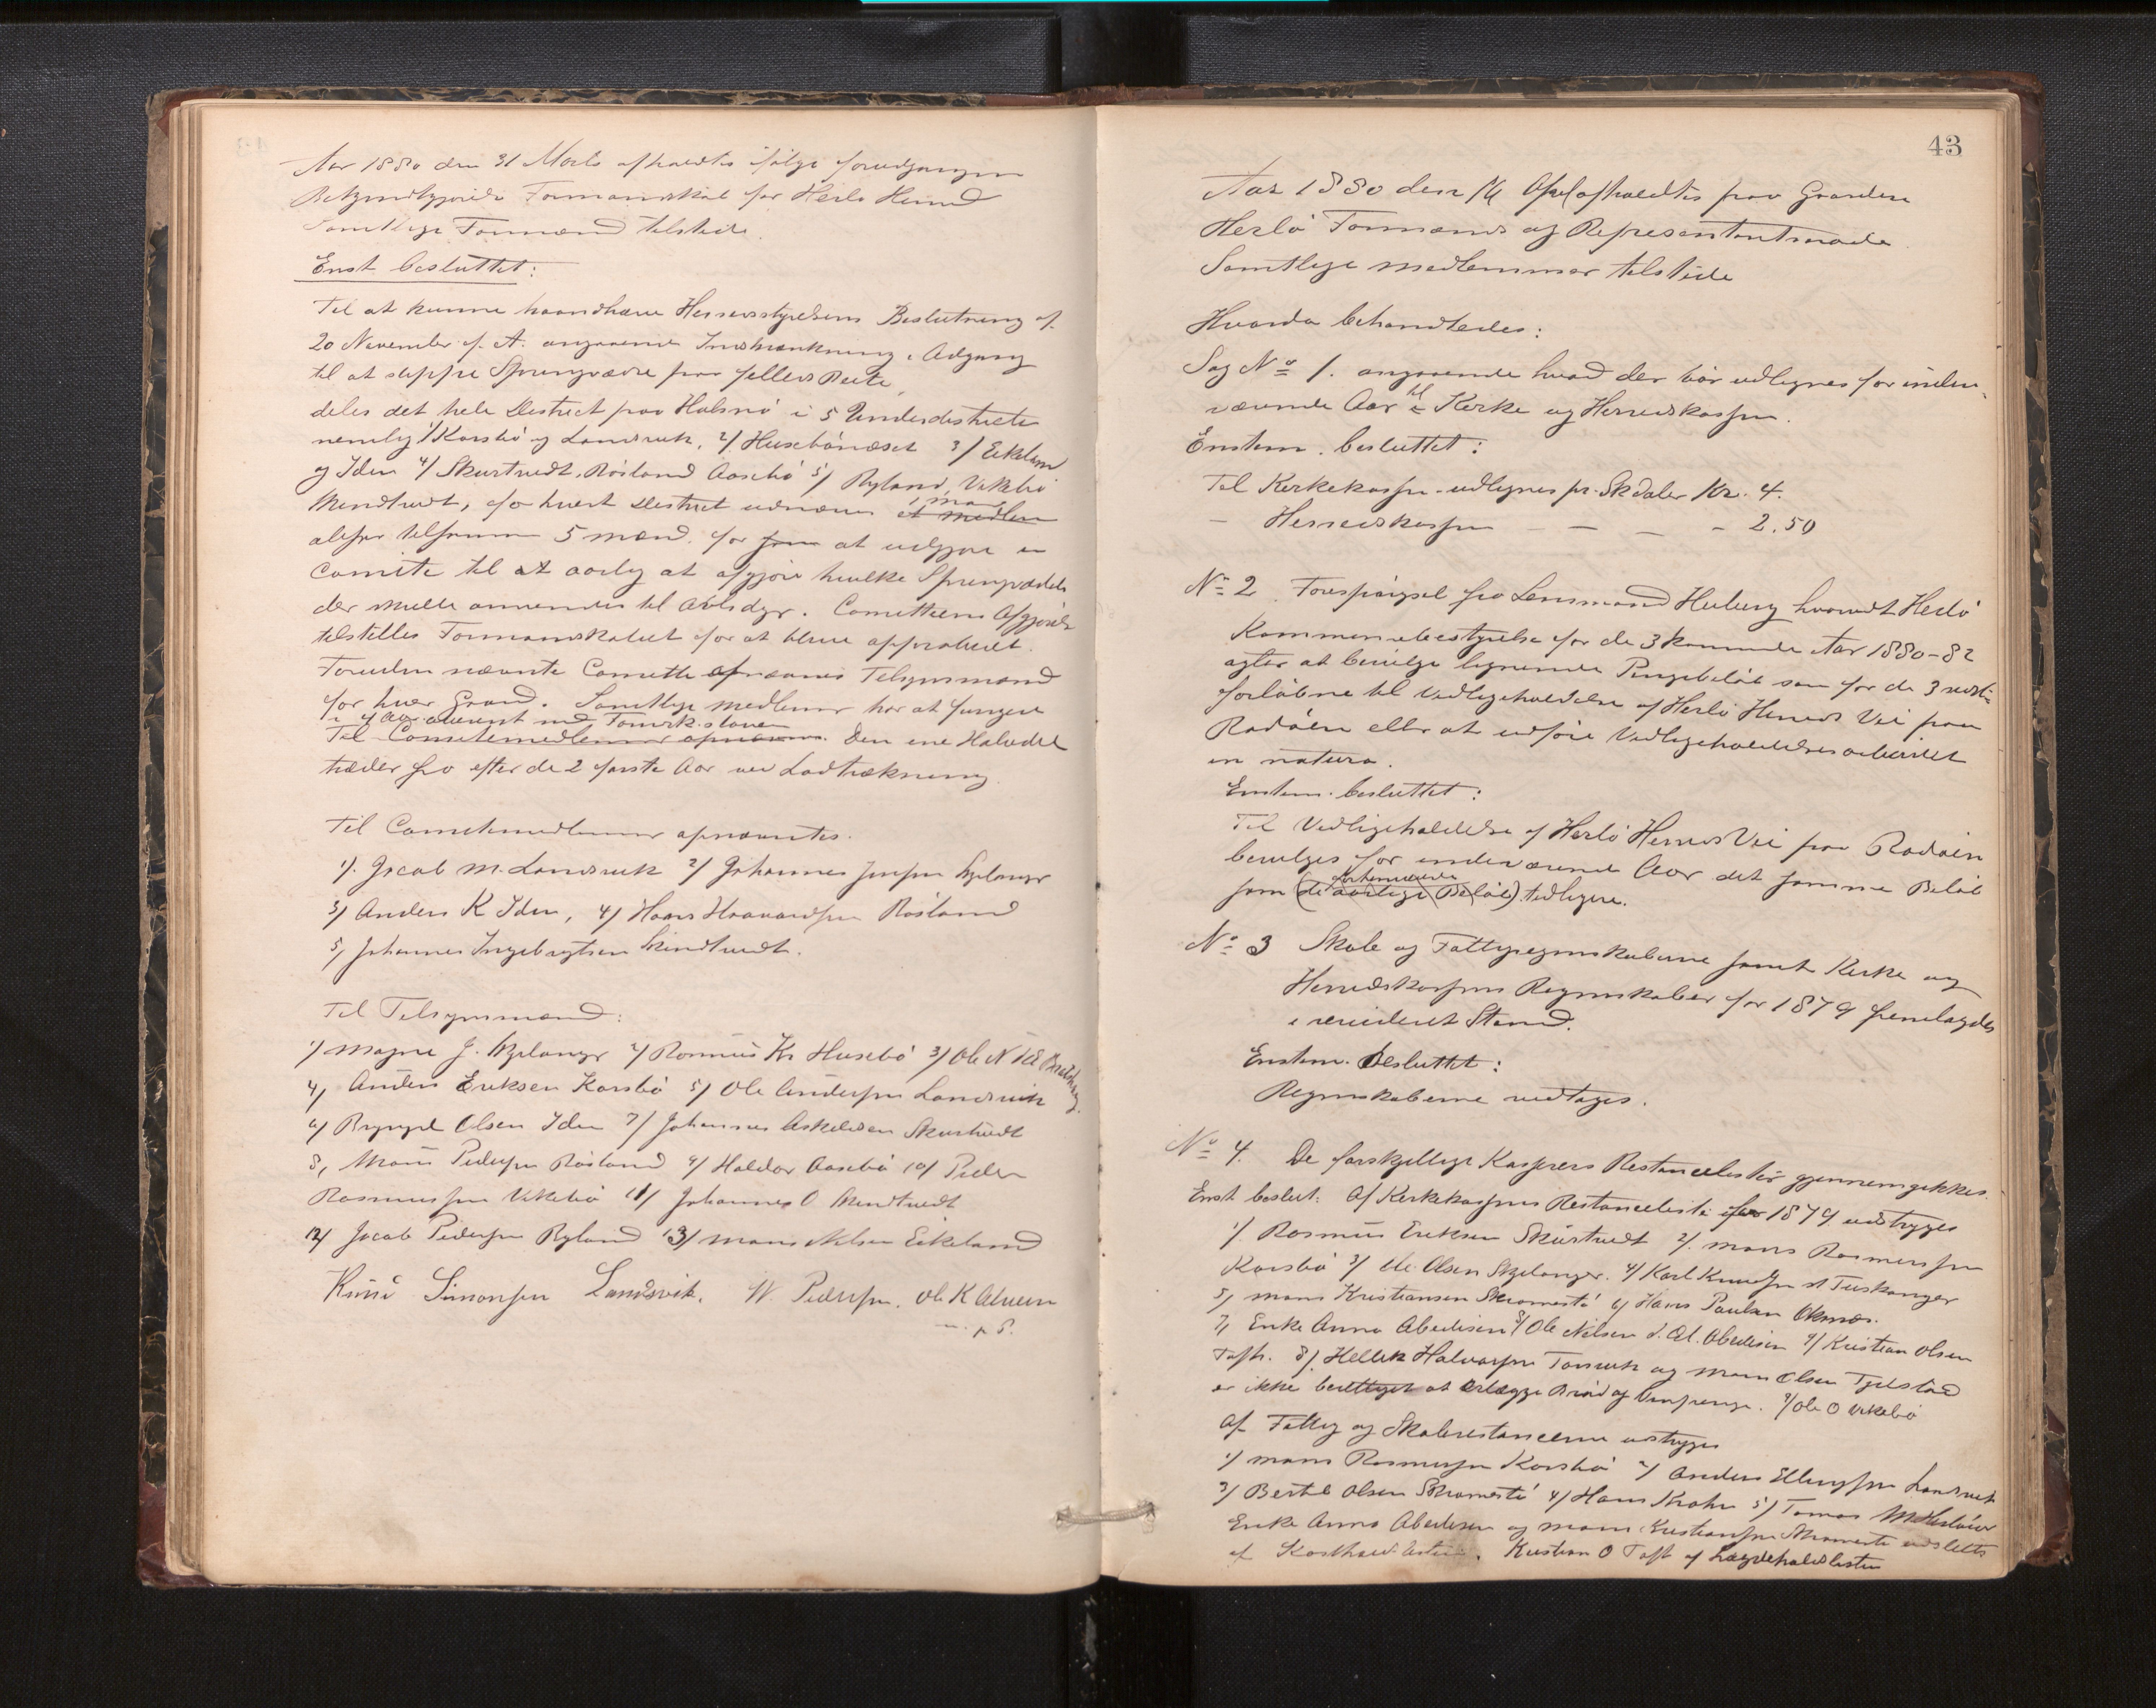 Aar 1880 den 31 Marts afholdtes ifølge forudgangen
Bekjendtgjørelse Formandskab for Herlø Herred
Samtlige Formænd tilstede.
Enst. besluttet:
Til at kunne haandhæve Herredsstyrelsens Beslutning af
20 November f. A. angaaende Indskrænkning i Adgang
til at slippe Springvædre paa fælleds Beite,
deles det hele District paa Holsnø i 5 Underdistricte
nemlig 1/ Korsbø og Landsvik, 2/ Husebønæset 3/ Eikeland
og Iden 4/ Skurtvedt, Røsland Aasebø 5/ Ryland, Vikebø
Mindtvedt, for hvert District udnævnes 1 man et medlem
altsaa tilsammen 5 mænd. for som at udgjøre en
Comite til at aarlig at afgjøre hvilke Springvædde
der skulle anvendes til Avlsdyr. Comitteens Afgjørelse
tilstilles Formandskabet for at blive approberet.
Foruden nævnte Comitte opnævnes Tilsynsmænd
for hver Grænd. Samtlige medlemer har at fungere
i 4 Aar
Til Comitemedlemer opnævnes. Den ene Halvdel
træder fra efter de 2 første Aar ved Lodtrækning.
Til Comitemedlemer opnævntes.
1/. Jacob M. Landsvik 2/ Johannes Jensen Skjelanger
3/ Anders K Iden, 4/ Hans Haavardsen Røsland
5/ Johannes Ingebrigtsen Mindtvedt.
Til Tilsynsmænd:
1/ Magne J. Skjelanger 2/ Rasmus Kr Husebø 3/ Ole N
4/ Anders Eriksen Korsbø 5/ Ole Andersen Landsvik
6/ Brynjel Olsen Iden 7/ Johannes Askeldsen Skurtvedt
8, Mons Pedersen Røsland 9/ Haldor Aasebø 10/ Peder
Rasmussen Vikebø 11/ Johannes O Mindtvedt
12/ Jacob Pedersen Ryland 13/ Mons Nilsen Eikeland
Knud Simonsen Landsvik. W. Pedersen. Ole K Alveen
m. p. P.
43
Aar 1880 den April afholdtes paa Gaarden
Herlø Formænds og Representantmøde.
Samtlige medlemmer tilstede
Hvorda behandledes:
Sag No 1. angaaende hvad der bør udlignes for inde-
værende Aar til Kirke og Herredskassen.
Enstem. besluttet:
Til Kirkekassen udlignes pr. Skdaler Kr. 4.
- Herredskassen - - - 2.50
No 2. Forespørgsel fra Lensmand Heiberg hvorvidt Herlø
Kommunebestyrelse for de 3 kommende Aar 1880-82
agter at bevilge lignende Pengebeløb som for de 3 sidst-
forløbne til Vedligeholdelse af Herlø Herreds Vei paa
Radøen eller at udføre Vedligeholdelsesarbeidet
in natura.
Enstem. besluttet:
Til Vedligeholdelse af Herlø Herreds Vei paa Radøen
bevilges for indeværende Aar det samme Beløb
som (de aarlige Beløb) tidligere.
No 3 Skole og Fattigregnskaberne samt Kirke og
Herredskassens Regnskaber for 1879 fremlagdes
i revideret Stand.
Enstem. Besluttet:
Regnskaberne vedtages.
No 4. De forskjellige Kassers Restancelister gjennemgikkes.
Enst. beslut: Af Kirkekassens Restanceliste for 1879 udstryges
1/ Rasmus Eriksen Skurtvedt 2/. Mons Rasmussen
Korsbø 3/ Ole Olsen Skjelanger. 4/ Karl Knudsen Tuskanger
5/ Mons Kristiansen Skromestø 6/ Hans Paulsen
7, Enke Anna Abelsen 8/ Ole Nilsen 9/ Kristian Olsen
Toft. 8/. Hellek Halvorsen og Mons Olsen Tjelstad
er ikke berettiget at erlægge Brød og Vinpenge. 9/ Ole O Vikebø
Af Fattig og Skolerestancerne udstryges
1/ Mons Rasmussen Korsbø 2/ Anders Ellingsen Landsvik
3/ Bertel Olsen Skromestø 4/ Hans Krohn 5/ Tomas M
Enke Anna Abelsen og Mons Kristiansen Skromestø udslettes
af. Kristian O Toft af Lægdeholdslisten